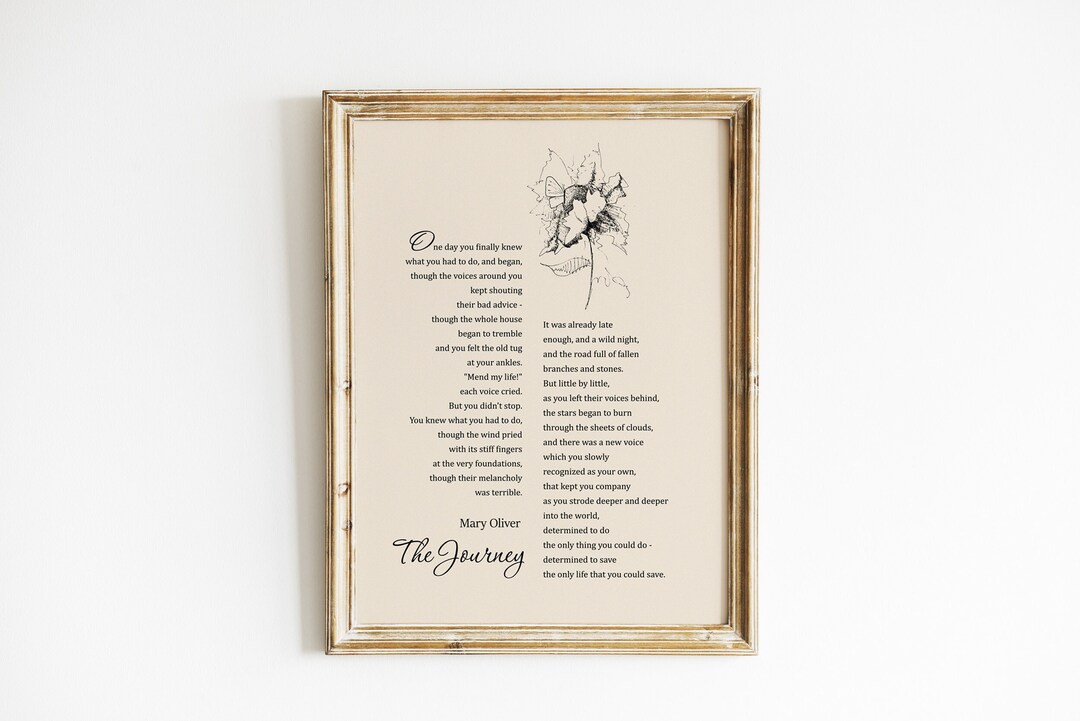 One day you finally knew
what you had to do, and began,
though the voices around you
kept shouting
their bad advice -
though the whole house
began to tremble
and you felt the old tug
at your ankles.
"Mend my life!"
each voice cried.
But you didn't stop.
You knew what you had to do,
though the wind pried
with its stiff fingers
at the very foundations,
though their melancholy
was terrible.
It was already late
enough, and a wild night,
and the road full of fallen
branches and stones.
But little by little,
as you left their voices behind,
the stars began to burn
through the sheets of clouds,
and there was a new voice
which you slowly
recognized as your own,
that kept you company
as you strode deeper and deeper
into the world,
determined to do
the only thing you could do -
determined to save
the only life that you could save.
Mary Oliver
The Journey